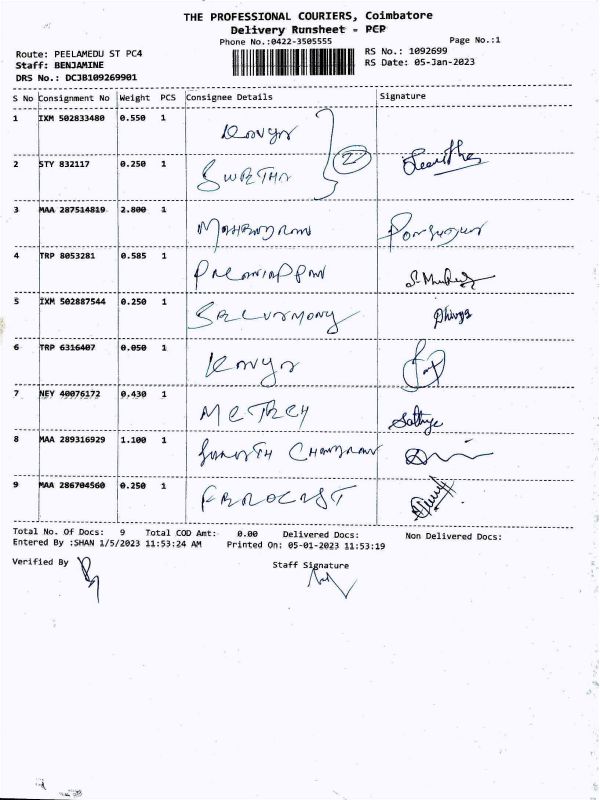 THE PROFESSIONAL COURIERS, Coimbatore
Delivery Runsheet - PCP
Phone No.:0422-3505555 Page No.:1
Route: PEELAMEDU ST PC4 RS No.: 1092699
Staff: BENJAMINE RS Date: 05-Jan-2023
DRS No.: DCJB109269901
S No Consignment No Weight PCS Consignee Details Signature
1 IXM 502833480 0.550 1 Kavya
2 STY 832117 0.250 1 SWETHA 2
3 MAA 287514819 2.800 1
4 TRP 8053281 0.585 1 Palaniappan
5 IXM 502887544 0.250 1 Dhivya
6 TRP 6316407 0.050 1 Kavya
7 NEY 40076172 0.430 1 Sathya
8 MAA 289316929 1.100 1
9 MAA 286704560 0.250 1
Total No. Of Docs: 9 Total COD Amt: 0.00 Delivered Docs: Non Delivered Docs:
Entered By :SHAN 1/5/2023 11:53:24 AM Printed On: 05-01-2023 11:53:19
Verified By Staff Signature